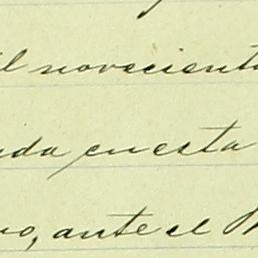 il novecient
ida en esta
vo, ante el